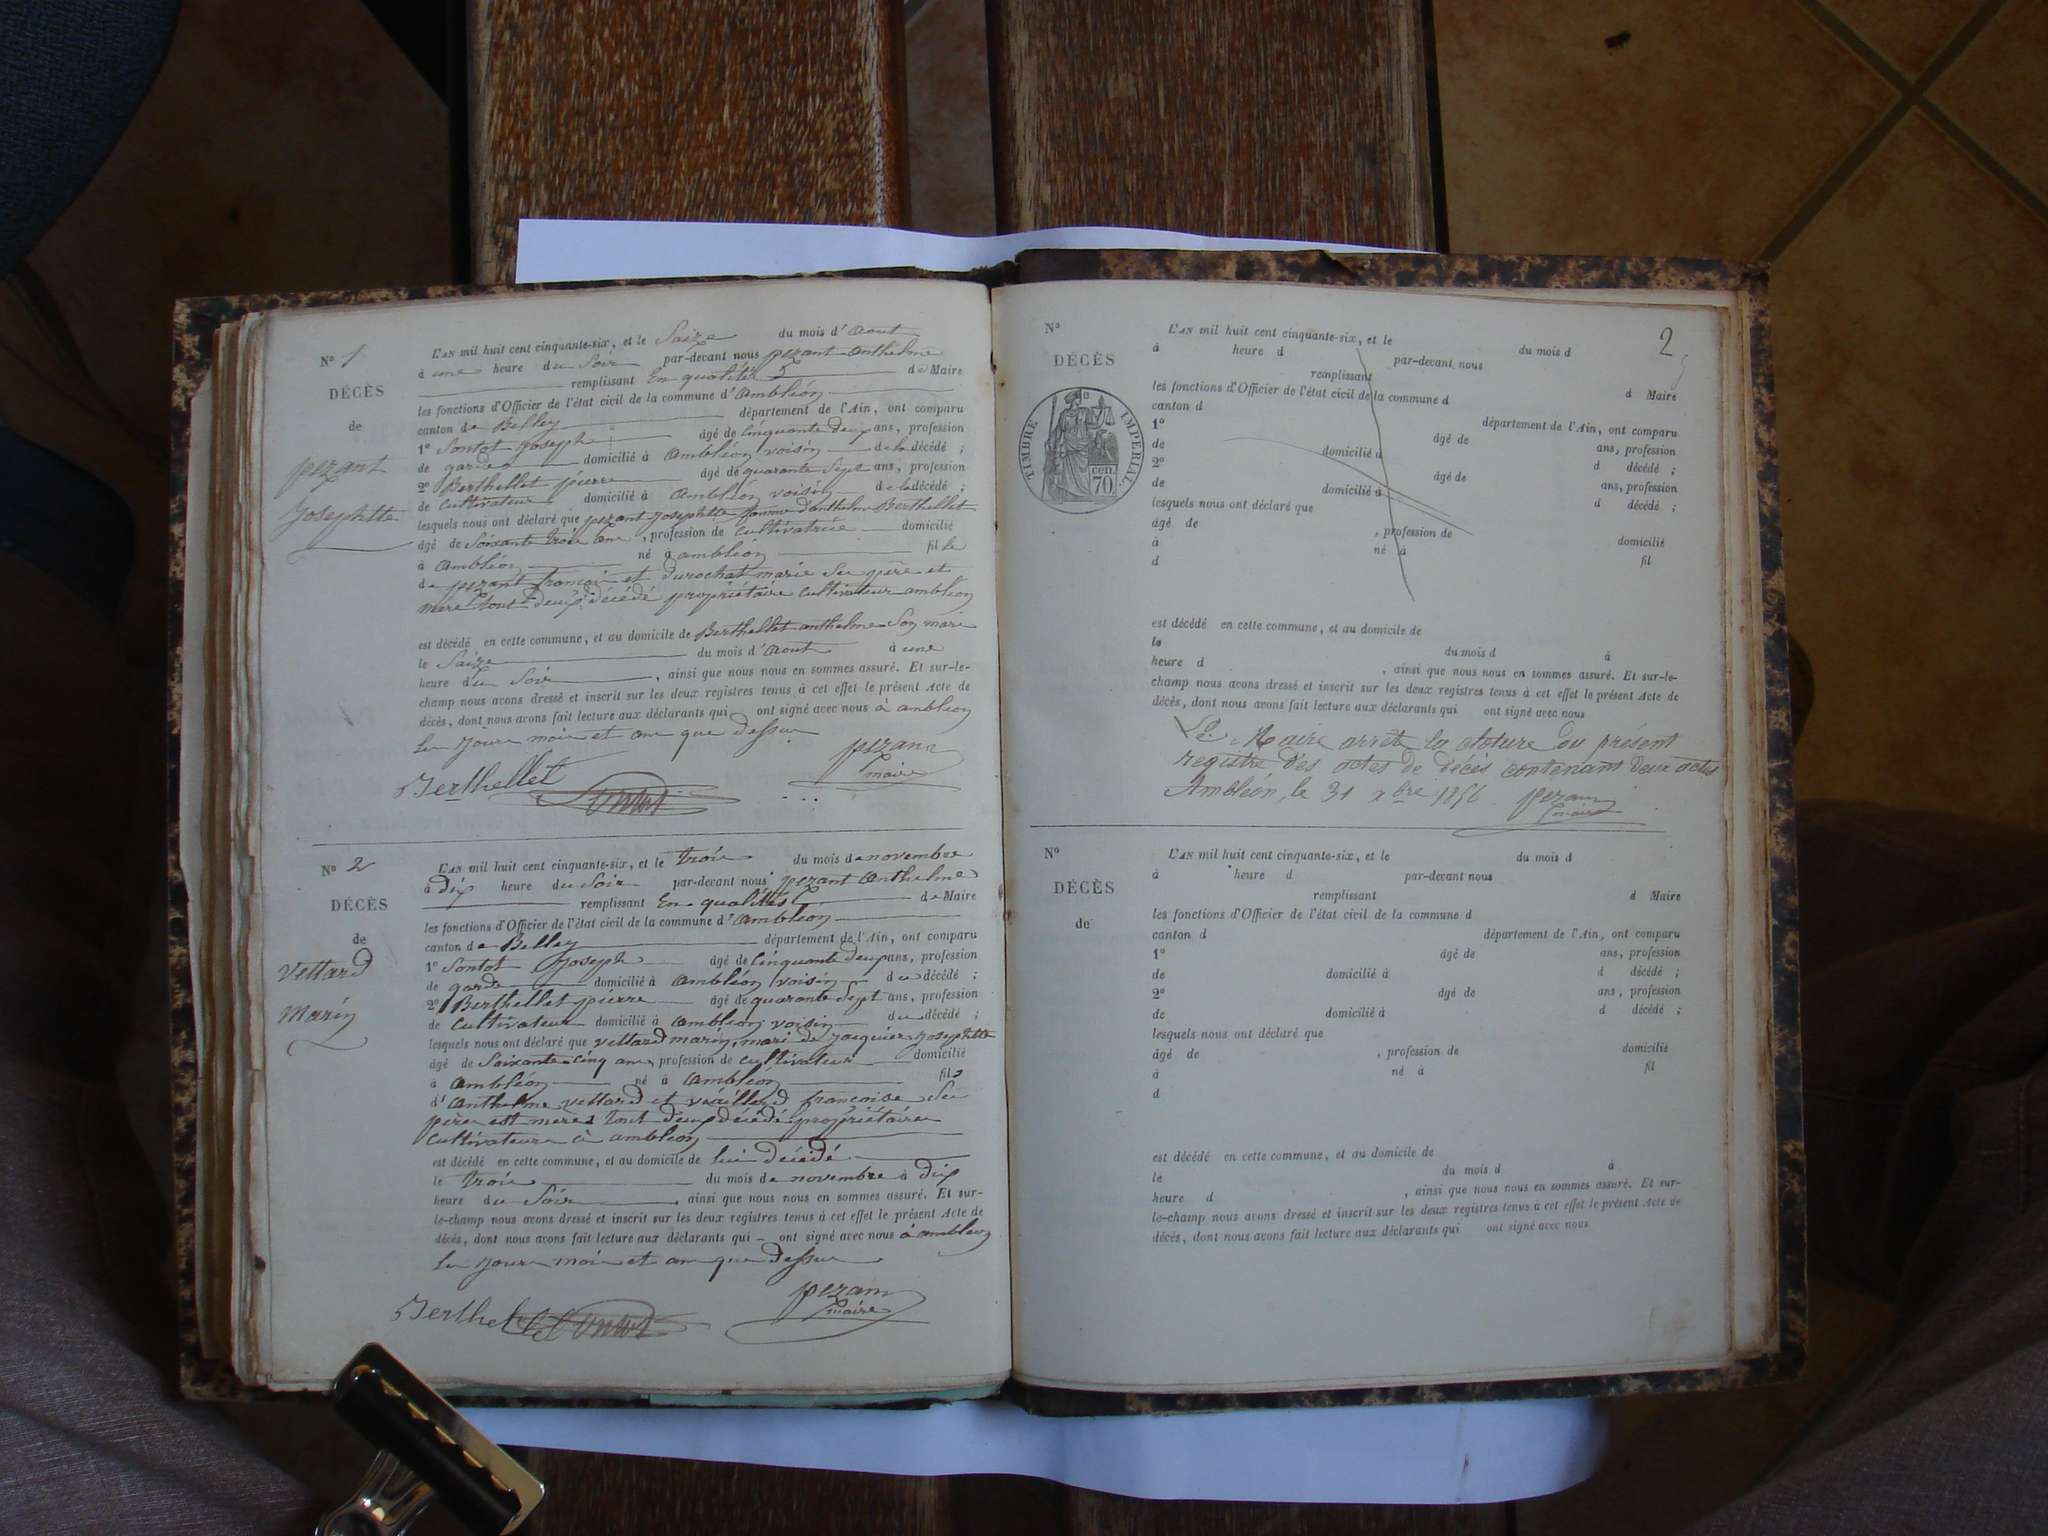 N° 1
DÉCÈS
de
pezant
Josephtte
L'AN mil huit cent cinquante-six, et le Saize du mois d'Aout
à une heure du Soir par-devant nous pezant anthelme
remplissant En qualités de Maire
les fonctions d'Officier de l'état civil de la commune d'Ambléon
canton de Belley département de l'Ain, ont comparu
1° Sontot Joseph âgé de cinquante deux ans, profession
de garde domicilié à Ambléon voisin de la décédé ;
2° Berthellet pierre âgé de quarante Sept ans, profession
de Cultivateur domicilié à Ambléon voisin de la décédé ;
lesquels nous ont déclaré que pezant Josephtte femme d'anthelme Berthellet
âgé de Soixante trois ans, profession de cultivatrice domicilié
à Ambléon né à ambléon fil le
de pezant françois et Durochat marie Ses père et
mère tout deux décédé propriétaire cultivateur ambleon
est décédé en cette commune, et au domicile de Berthellet anthelme Son mari
le Saize du mois d'Aout à une
heure du Soir, ainsi que nous nous en sommes assuré. Et sur-le-
champ nous avons dressé et inscrit sur les deux registres tenus à cet effet le présent Acte de
décès, dont nous avons fait lecture aux déclarants qui ont signé avec nous à ambleon
Les Jours mois et an que dessus
Berthellet
pezant
maire
N° 2
DÉCÈS
de
Vettard
Marin
L'AN mil huit cent cinquante-six, et le trois du mois de novembre
à dix heure du Soir par-devant nous pezant Anthelme
remplissant En qualités de Maire
les fonctions d'Officier de l'état civil de la commune d'Ambléon
canton de Belley département de l'Ain, ont comparu
1° Sontot Joseph âgé de cinquante deux ans, profession
de garde domicilié à Ambléon voisin du décédé ;
2° Berthellet pierre âgé de quarante Sept ans, profession
de Cultivateur domicilié à Ambléon voisin du décédé ;
lesquels nous ont déclaré que Vettard marin, mari de Jacquier Josephtte
âgé de Soixante-cinq ans, profession de cultivateur domicilié
à Ambléon né à Ambléon fils
d'Anthelme Vettard et françoise Ses
père est mères tout deux décédé propriétaires
Cultivateurs à ambleon
est décédé en cette commune, et au domicile de lui décédé
le trois du mois de novembre à dix
heure du Soir, ainsi que nous nous en sommes assuré. Et sur-
le-champ nous avons dressé et inscrit sur les deux registres tenus à cet effet le présent Acte de
décès, dont nous avons fait lecture aux déclarants qui ont signé avec nous à ambleon
Les Jours mois et an que dessus
Berthellet
pezant
maire
2
N°
DÉCÈS
TIMBRE IMPÉRIAL
70 cen.
L'AN mil huit cent cinquante-six, et le du mois d
à heure d par-devant nous
remplissant d Maire
les fonctions d'Officier de l'état civil de la commune d
canton d département de l'Ain, ont comparu
1° âgé de ans, profession
de domicilié à d décédé ;
2° âgé de ans, profession
de domicilié à d décédé ;
lesquels nous ont déclaré que
âgé de , profession de domicilié
à né à fil
d
est décédé en cette commune, et au domicile de
le du mois d à
heure d , ainsi que nous nous en sommes assuré. Et sur-le-
champ nous avons dressé et inscrit sur les deux registres tenus à cet effet le présent Acte de
décès, dont nous avons fait lecture aux déclarants qui ont signé avec nous
Le Maire arrête la cloture du présent
registre des actes de décès contenant deux actes
Ambléon, le 31 xbre 1856
pezant
maire
N°
DÉCÈS
de
L'AN mil huit cent cinquante-six, et le du mois d
à heure d par-devant nous
remplissant d Maire
les fonctions d'Officier de l'état civil de la commune d
canton d département de l'Ain, ont comparu
1° âgé de ans, profession
de domicilié à d décédé ;
2° âgé de ans, profession
de domicilié à d décédé ;
lesquels nous ont déclaré que
âgé de , profession de domicilié
à né à fil
d
est décédé en cette commune, et au domicile de
le du mois d à
heure d , ainsi que nous nous en sommes assuré. Et sur-
le-champ nous avons dressé et inscrit sur les deux registres tenus à cet effet le présent Acte de
décès, dont nous avons fait lecture aux déclarants qui ont signé avec nous